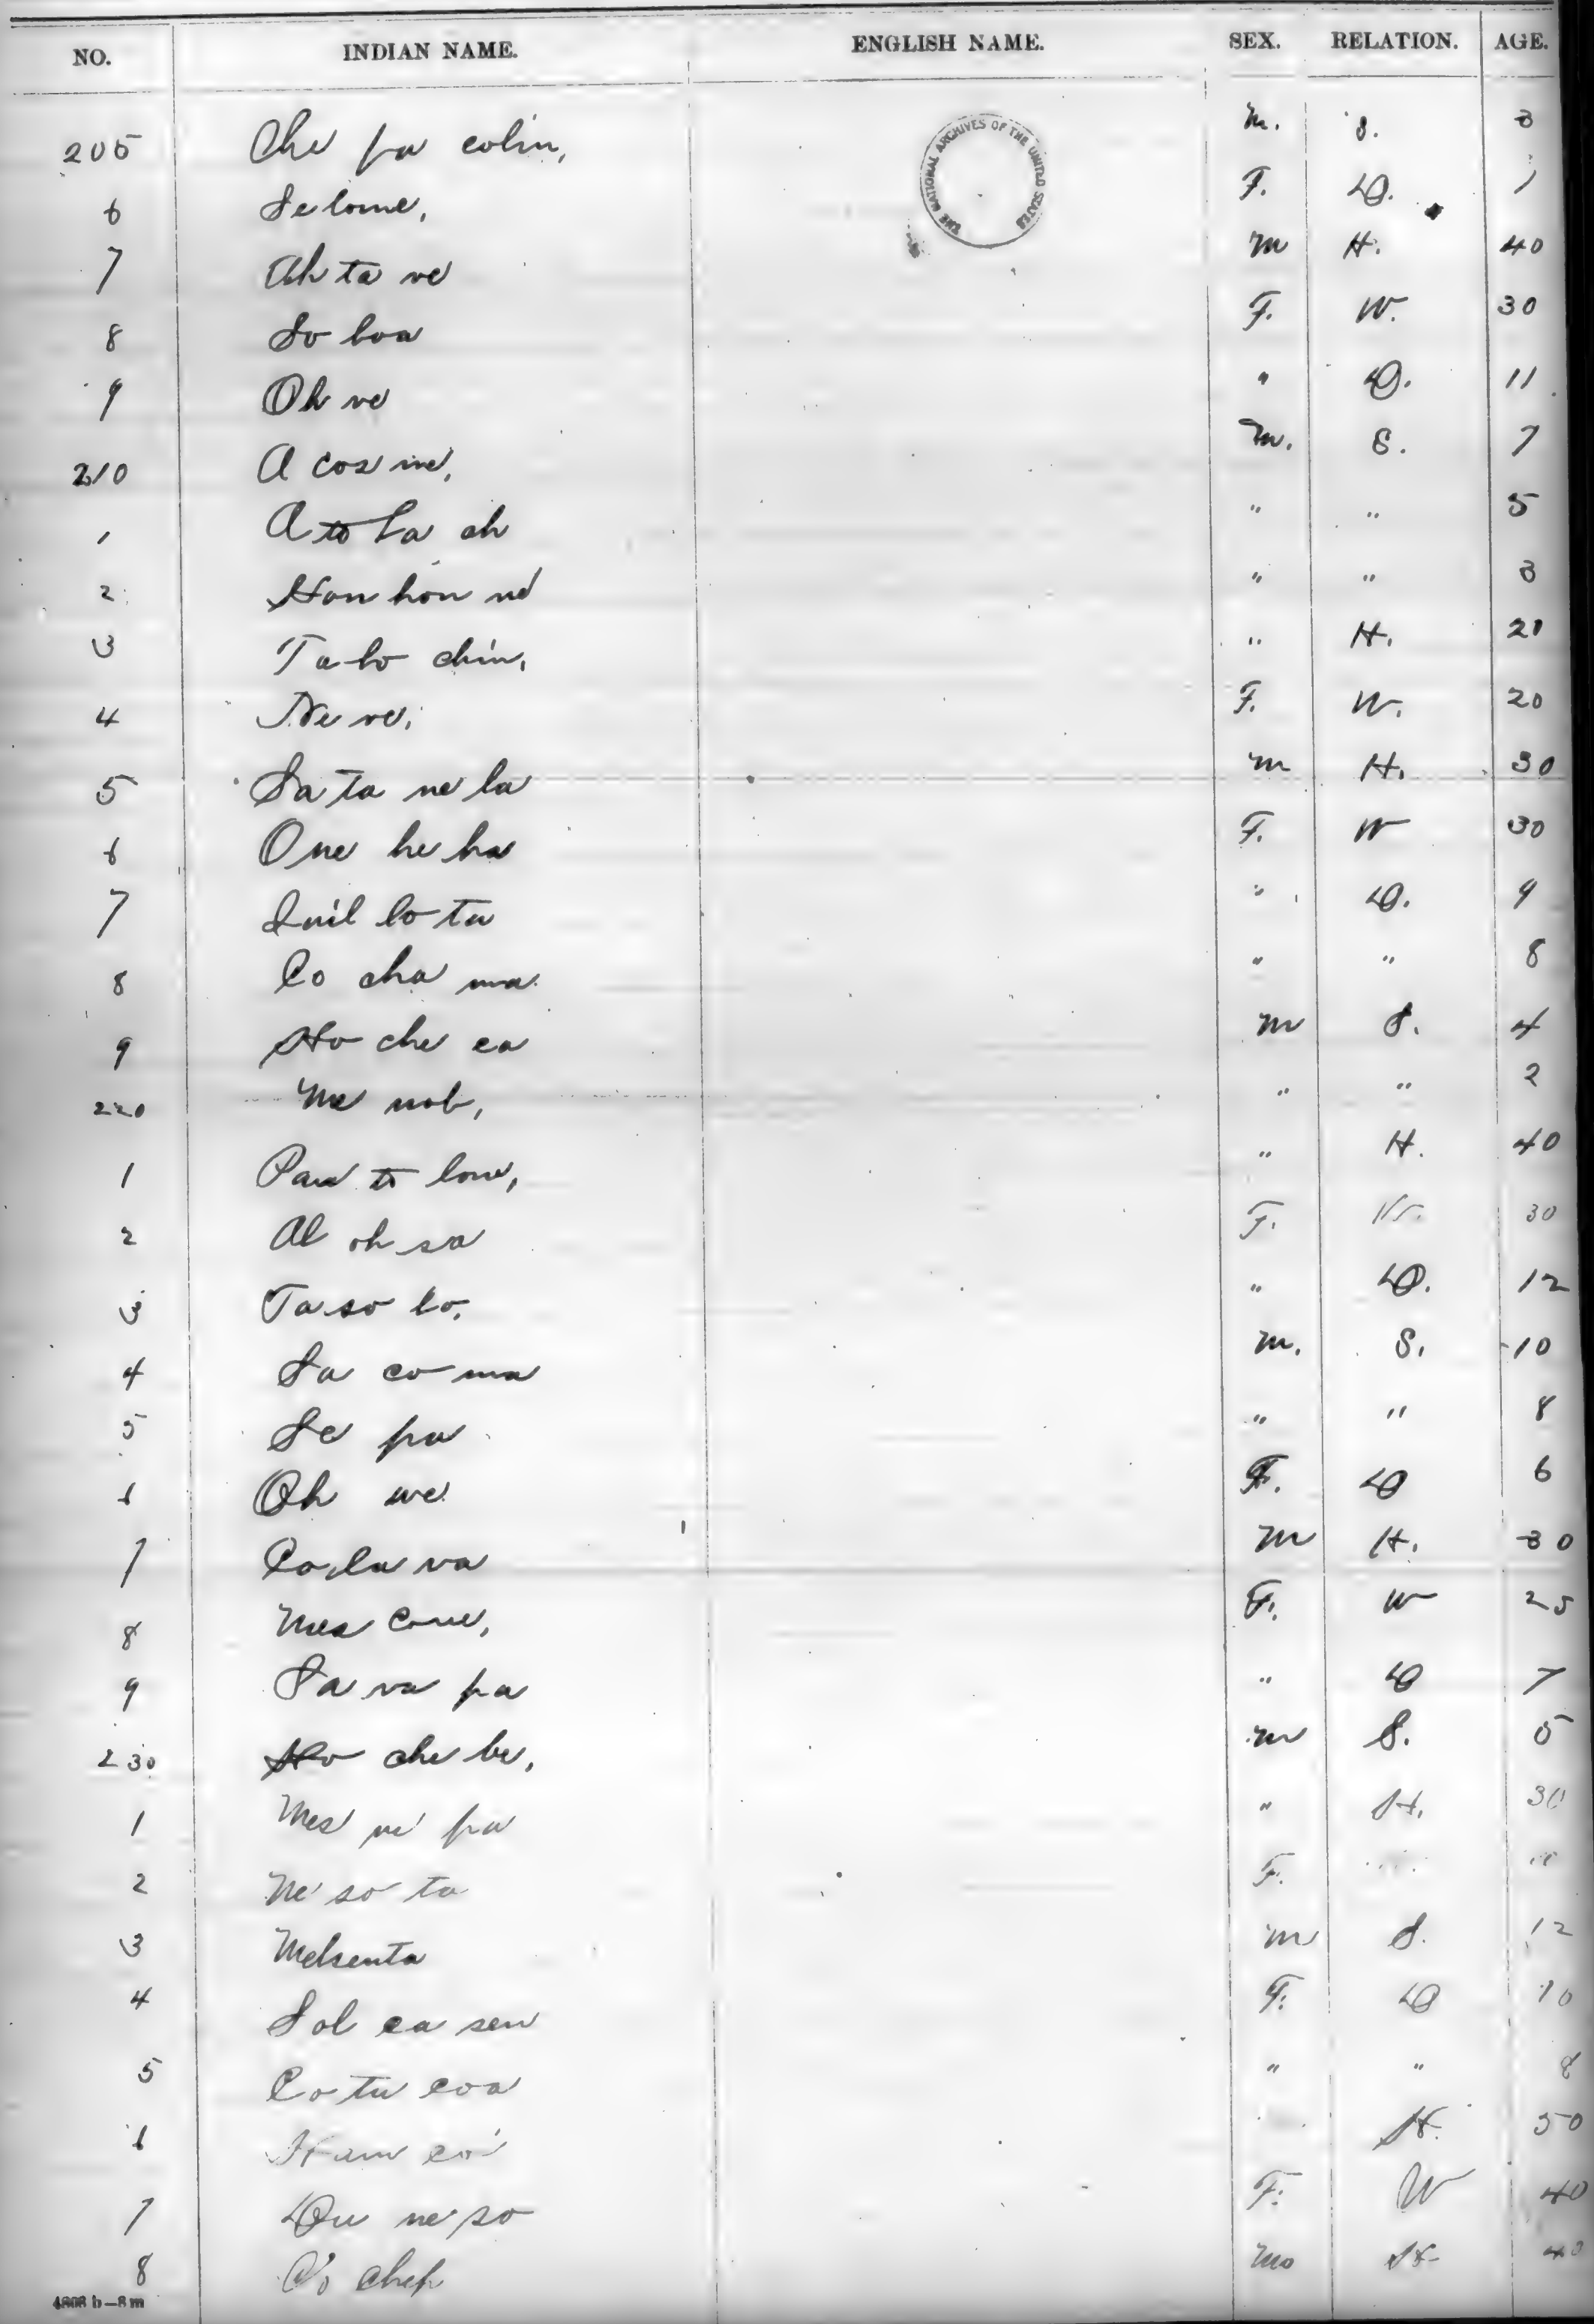 NO. INDIAN NAME. ENGLISH NAME. SEX. RELATION. AGE.
THE NATIONAL ARCHIVES OF THE UNITED STATES
205 Che pa colin, M. S. 3
6 Selome, F. D. 1
7 Ah ta ve M H. 40
8 So loa F. W. 30
9 Oh ve " D. 11
210 A cos ne, M. S. 7
1 A to La ch " " 5
2 Hon hon ne " " 3
3 Ta lo chin, " H. 21
4 Ne ve, F. W. 20
5 Sa ta ne la M H. 30
6 One he ha F. W 30
7 Quil lo ta " D. 9
8 Co cha ma " " 8
9 Ho che ca M S. 4
220 Me not, " " 2
1 Paw to lone, " H. 40
2 Al oh sa F. W. 30
3 Ta so lo, " D. 12
4 Sa co ma M. S. 10
5 Se pa " " 8
6 Oh we F. D 6
7 Co la va M H. 30
8 Mes cone, F. W 25
9 Sa va pa " D 7
230 Ho che be, M S. 5
1 Mes ne pa " H. 30
2 Ne so ta F.
3 Melsenta M S. 12
4 Sol ca sen F. D 10
5 Co tu coa " " 8
6 Ham co H. 50
7 Du ne so F. W 40
8 Co chep M H 40
4808 b—8 m